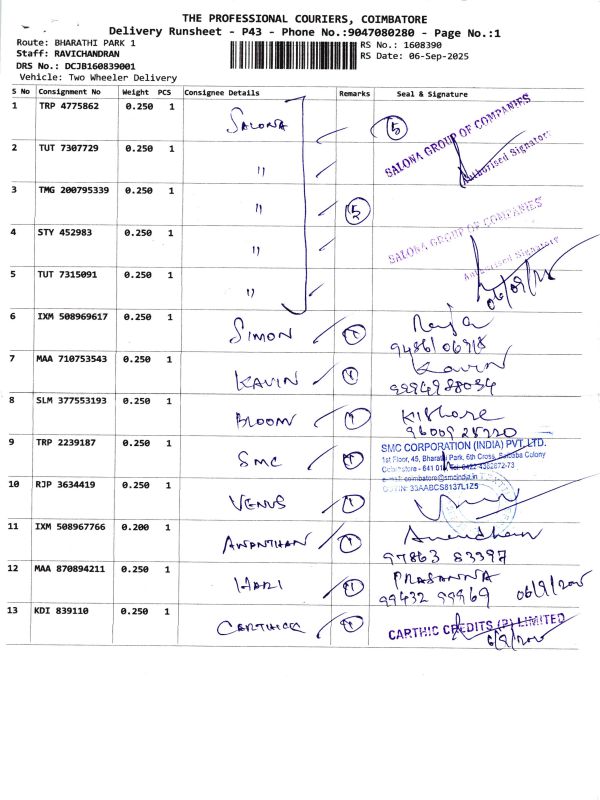 THE PROFESSIONAL COURIERS, COIMBATORE
Delivery Runsheet - P43 - Phone No.:9047080280 - Page No.:1
Route: BHARATHI PARK 1
RS No.: 1608390
Staff: RAVICHANDRAN
RS Date: 06-Sep-2025
DRS No.: DCJB160839001
Vehicle: Two Wheeler Delivery
S No Consignment No Weight PCS Consignee Details Remarks Seal & Signature
1 TRP 4775862 0.250 1 SALONA 5 SALONA GROUP OF COMPANIES
Authorised Signatory
2 TUT 7307729 0.250 1 "
3 TMG 200795339 0.250 1 " 5
4 STY 452983 0.250 1 " SALONA GROUP OF COMPANIES
Authorised Signatory
5 TUT 7315091 0.250 1 " 06/09/25
6 IXM 508969617 0.250 1 SIMON 1 Raja
7 MAA 710753543 0.250 1 KAVIN 1 Kavin
8 SLM 377553193 0.250 1 BLOOM 1 Kishore
9 TRP 2239187 0.250 1 SMC 1 SMC CORPORATION (INDIA) PVT. LTD.
1st Floor, 45, Bharathi Park, 6th Cross, Saibaba Colony
Coimbatore - 641 011
e-mail: coimbatore@smcindia.in
10 RJP 3634419 0.250 1 VENUS 1
11 IXM 508967766 0.200 1 ANANTHAN 1
97863 83397
12 MAA 870894211 0.250 1 HARI 1 PRASANNA
99432 99969
13 KDI 839110 0.250 1 1 CARTHIC CREDITS (P) LIMITED